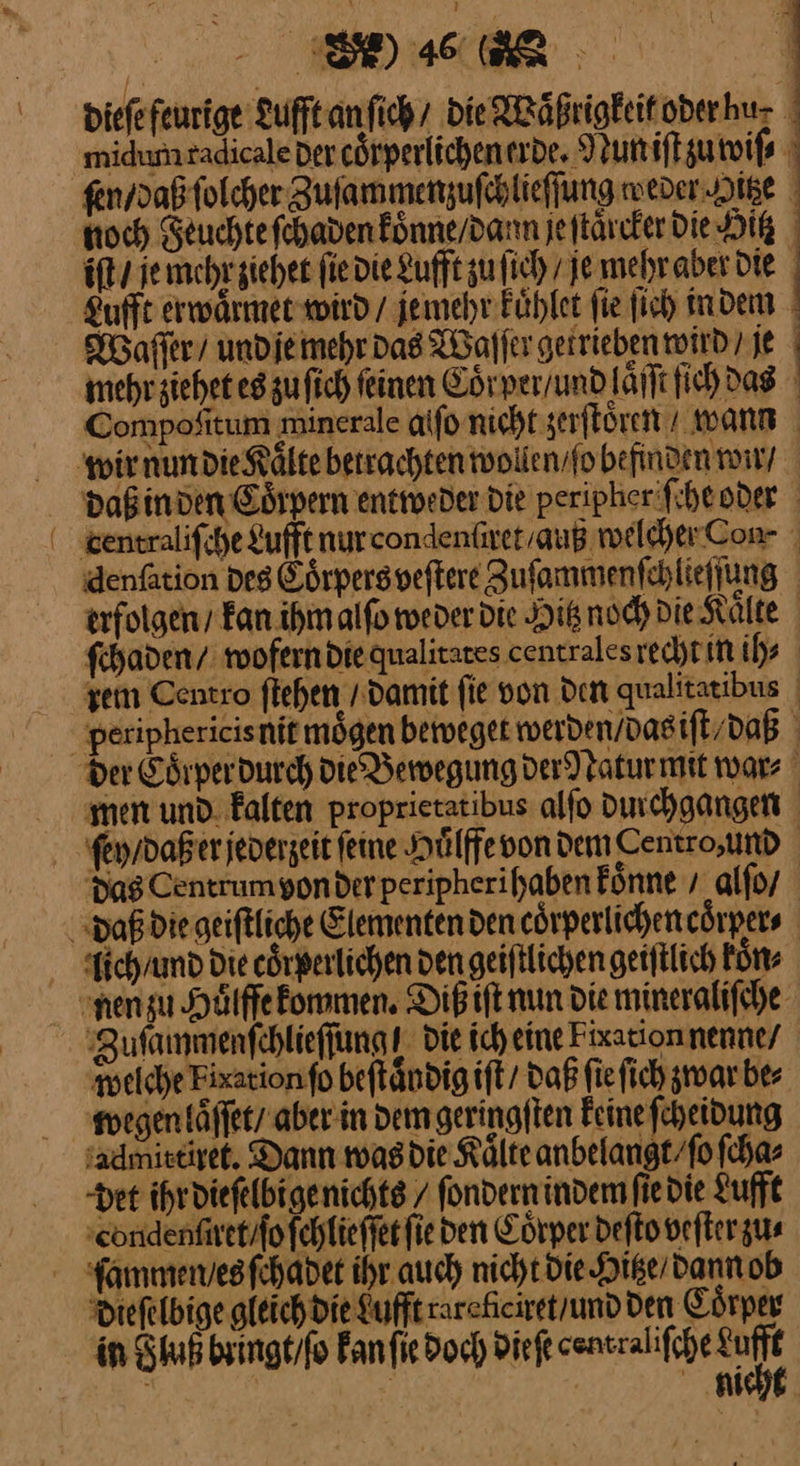 46
dieſe feurige Lufft an ſich / die Waͤßrigkeit oder hu-
midum radicale der coͤrperlichen erde. Nun iſt zu wiſ-
ſen / daß ſolcher Zuſammenzuſchlieſſung weder Hitze
noch Feuchte ſchaden koͤnne / dann je ſtaͤrcker die Hitz
iſt / je mehr ziehet ſie die Lufft zu ſich / je mehr aber die
Lufft erwaͤrmet wird / je mehr kuͤhlet ſie ſich in dem
Waſſer / und je mehr das Waſſer getrieben wird / je
mehr ziehet es zu ſich ſeinen Coͤrper / und laͤſſt ſich das
Compoſitum minerale alſo nicht zerſtoͤren / wann
wir nun die Kaͤlte betrachten wollen / ſo befinden wir /
daß in den Coͤrpern entweder die peripheriſche oder
centraliſche Lufft nur condenſiret / auß welcher Con-
denſation des Coͤrpers veſtere Zuſammenſchlieſſung
erfolgen / kan ihm alſo weder die Hitz noch die Kaͤlte
ſchaden / wofern die qualitates centrales recht in ih-
rem Centro ſtehen / damit ſie von den qualitatibus
periphericis nit moͤgen beweget werden / das iſt / daß
der Coͤrper durch die Bewegung der Natur mit war-
men und kalten proprietatibus alſo durchgangen
ſey / daß er jederzeit ſeine Huͤlffe von dem Centro, und
das Centrum von der peripheri haben koͤnne / alſo /
daß die geiſtliche Elementen den coͤrperlichen coͤrper-
lich / und die coͤrperlichen den geiſtlichen geiſtlich koͤn-
nen zu Huͤlffe kommen. Diß iſt nun die mineraliſche
Zuſammenſchlieſſung / die ich eine Fixation nenne /
welche Fixation ſo beſtaͤndig iſt / daß ſie ſich zwar be-
wegen laͤſſet / aber in dem geringſten keine ſcheidung
admittiret. Dann was die Kaͤlte anbelangt / ſo ſcha-
det ihr dieſelbige nichts / ſondern indem ſie die Lufft
condenſiret / ſo ſchlieſſet ſie den Coͤrper deſto veſter zu-
ſammen / es ſchadet ihr auch nicht die Hitze / dann ob
dieſelbige gleich die Lufft rareficiret / und den Coͤrper
in Fluß bringt / ſo kan ſie doch dieſe centraliſche Lufft
nicht